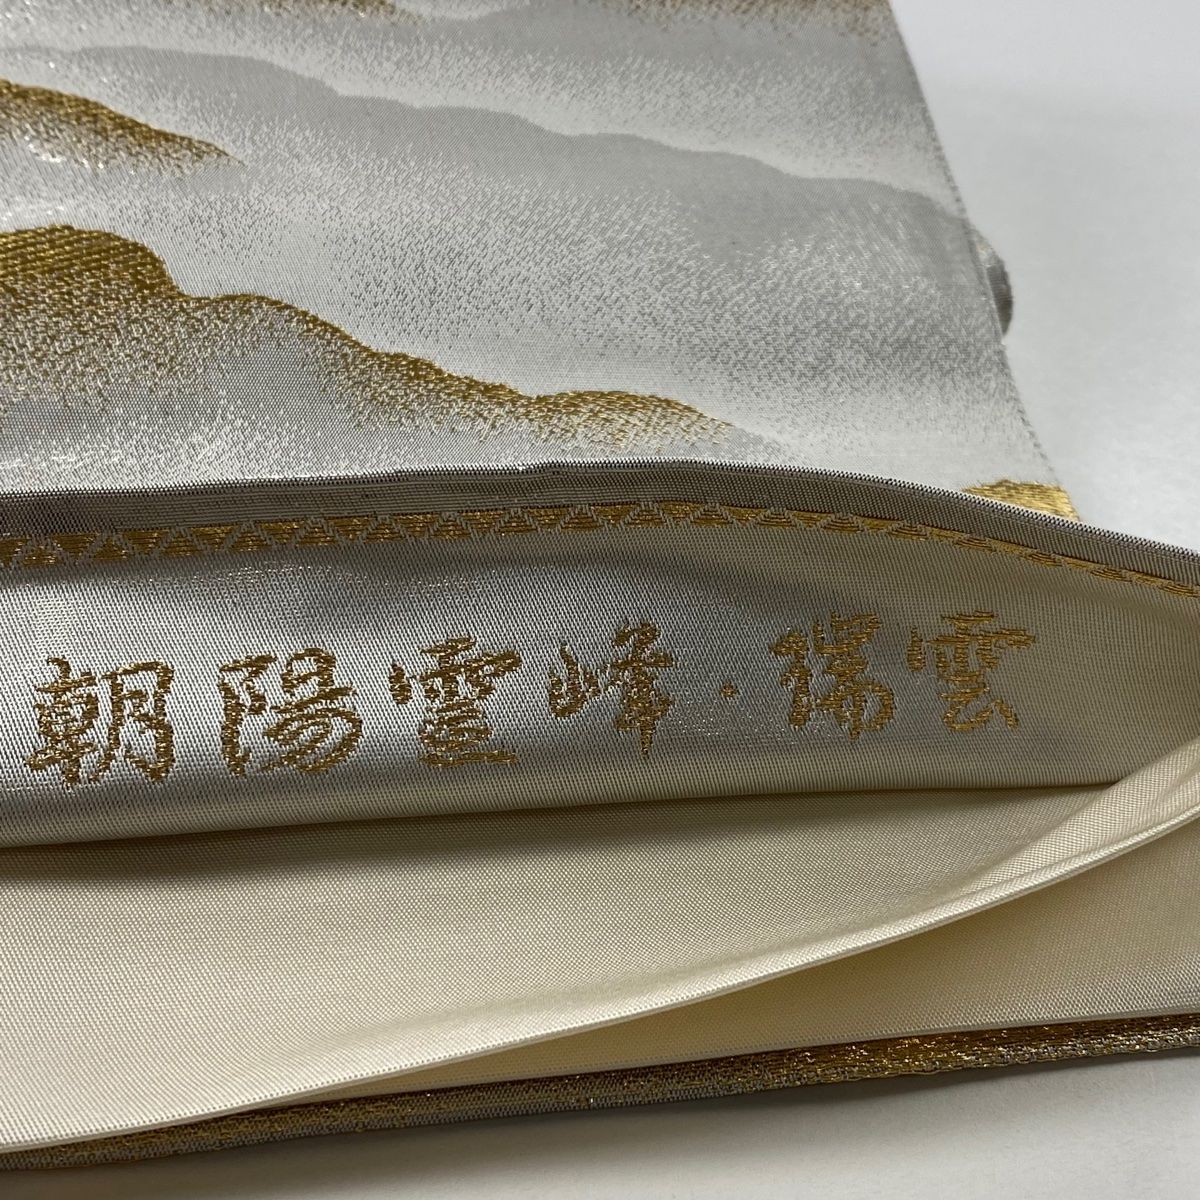 朝陽霊峰・瑞雲